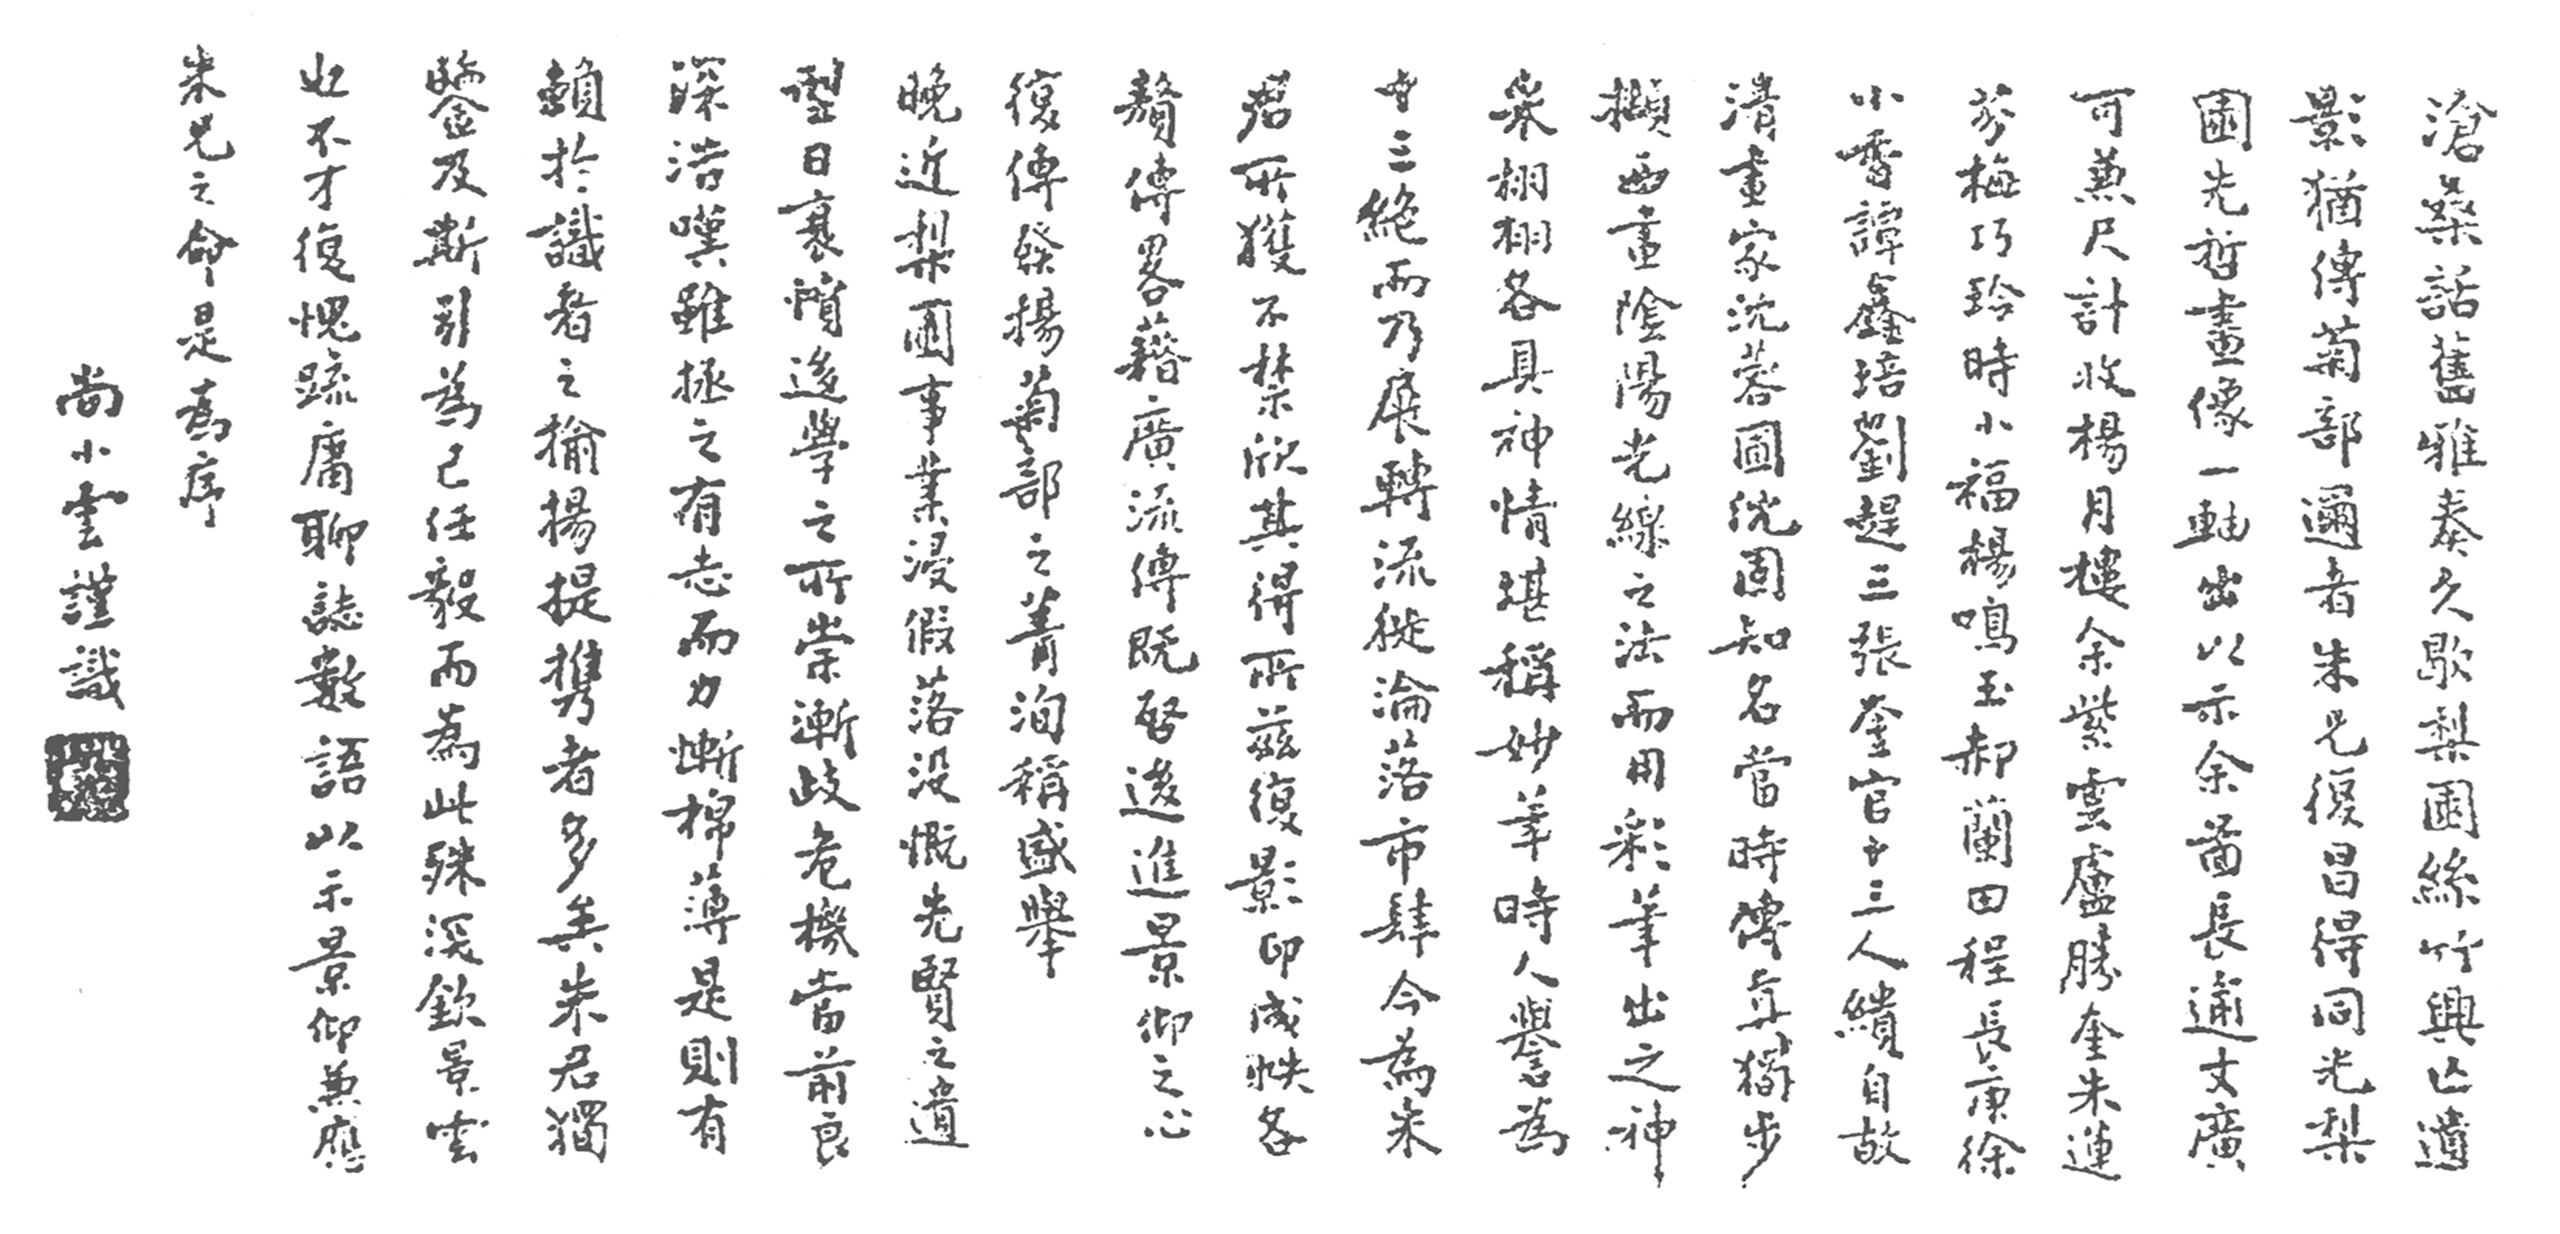 滄桑話舊雅奏久歇梨園絲竹興亡遺
影猶傳菊部邇者朱兄復昌得同光梨
園先哲畫像一軸出以示余首長逾丈廣
可兼尺計收楊月樓余紫雲盧勝奎朱蓮
芬梅巧玲時小福楊鳴玉郝蘭田程長庚徐
小香譚鑫培劉趕三張奎官十三人繢自故
清畫家沈蓉圃沈圃知名當時傳真獨步
擷西畫陰陽光線之法而用彩筆出之神
采栩栩各具神情堪稱妙筆時人譽為
十三絕而乃展轉流徙淪落市肆今為朱
君所獲不禁欣其得所茲復影印成帙各
贅傳畧藉廣流傳既啓後進景仰之心
復傳發揚菊部之菁洵稱盛舉
晚近梨園事業浸假落沒慨先賢之遺
型日衰惰後學之所崇漸歧危機當前良
深浩嘆雖拯之有志而力慚棉薄是則有
賴於識者之揄揚提携者多矣朱君獨
鑒及斯引為己任毅而為此殊深欽景雲
也不才復愧疏庸聊誌數語以示景仰兼應
朱兄之命是為序
尚小雲謹識